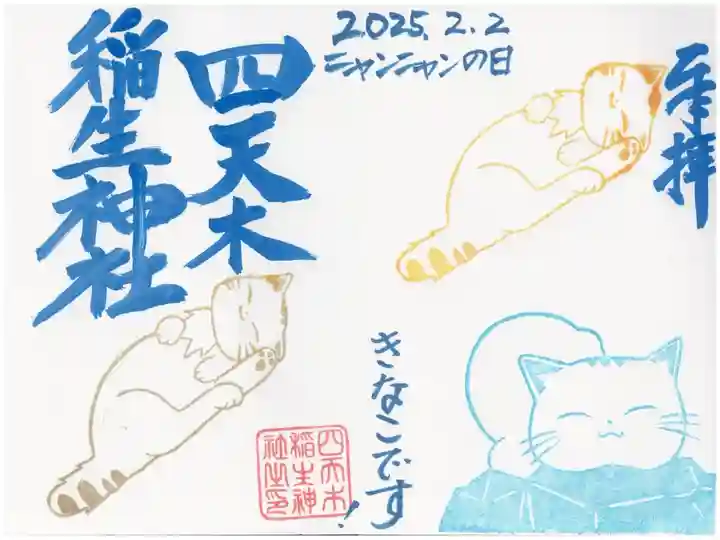 奉拝
2025.2.2
ニャンニャンの日
四天木
稲生神社
きなこです!
四天木
稲生神
社之印